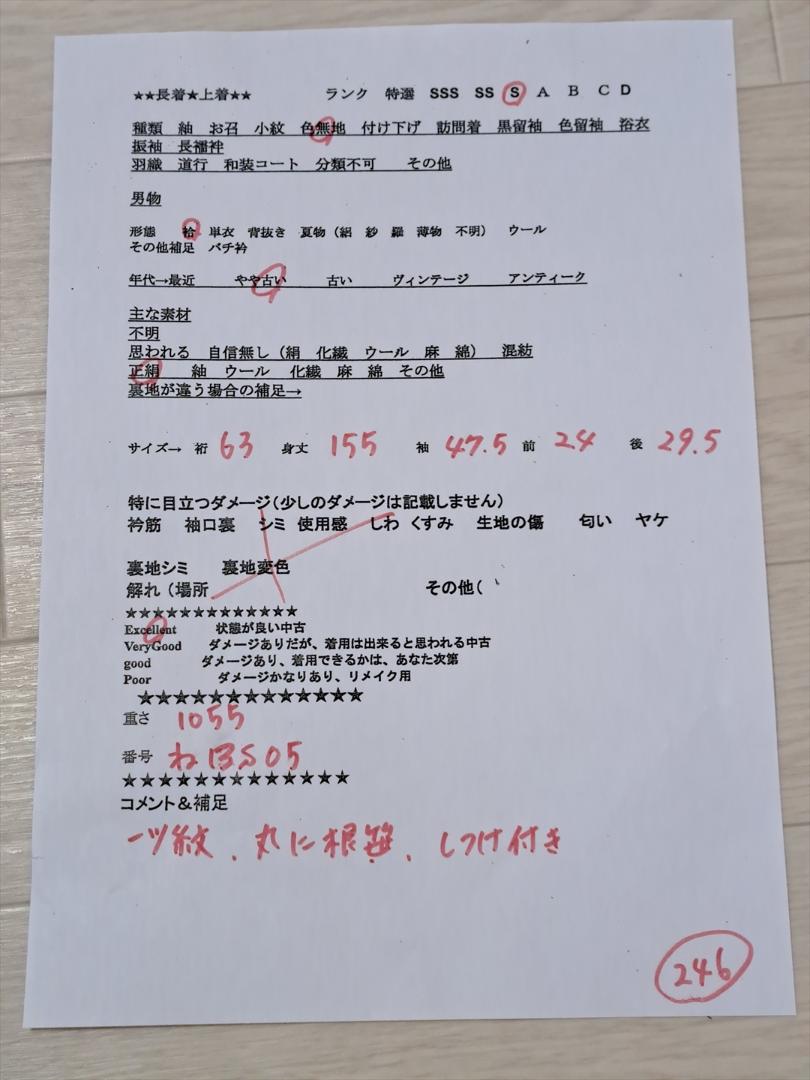 ★★長着★上着★★ ランク 特選 SSS SS S A B C D
種類 紬 お召 小紋 色無地 付け下げ 訪問着 黒留袖 色留袖 浴衣
振袖 長襦袢
羽織 道行 和装コート 分類不可 その他
男物
形態 袷 単衣 背抜き 夏物(絽 紗 羅 薄物 不明) ウール
その他補足 バチ衿
年代→最近 やや古い 古い ヴィンテージ アンティーク
主な素材
不明
思われる 自信無し(絹 化繊 ウール 麻 綿) 混紡
正絹 紬 ウール 化繊 麻 綿 その他
裏地が違う場合の補足→
サイズ→ 裄 63 身丈 155 袖 47.5 前 24 後 29.5
特に目立つダメージ(少しのダメージは記載しません)
衿筋 袖口裏 シミ 使用感 しわ くすみ 生地の傷 匂い ヤケ
裏地シミ 裏地変色
解れ(場所 その他(
★★★★★★★★★★★★★
Excellent 状態が良い中古
VeryGood ダメージありだが、着用は出来ると思われる中古
good ダメージあり、着用できるかは、あなた次第
Poor ダメージかなりあり、リメイク用
★★★★★★★★★★★★★
重さ 1055
番号 ねBS05
★★★★★★★★★★★★★
コメント&補足
一ツ紋、丸に根笹、しつけ付き
246